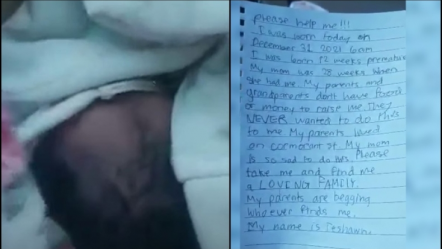 please help me!!!
I was born today on
December 31 2021 6am
I was born 12 weeks premature
My mom was 28 weeks when
she had me. My parents and
grandparents don't have food
or money to raise me. They
NEVER wanted to do this
to me. My parents
My mom
is so sad to do this. Please
take me and find me
a LOVING FAMILY.
My parents are begging
whoever finds me.
My name is Teshawn.